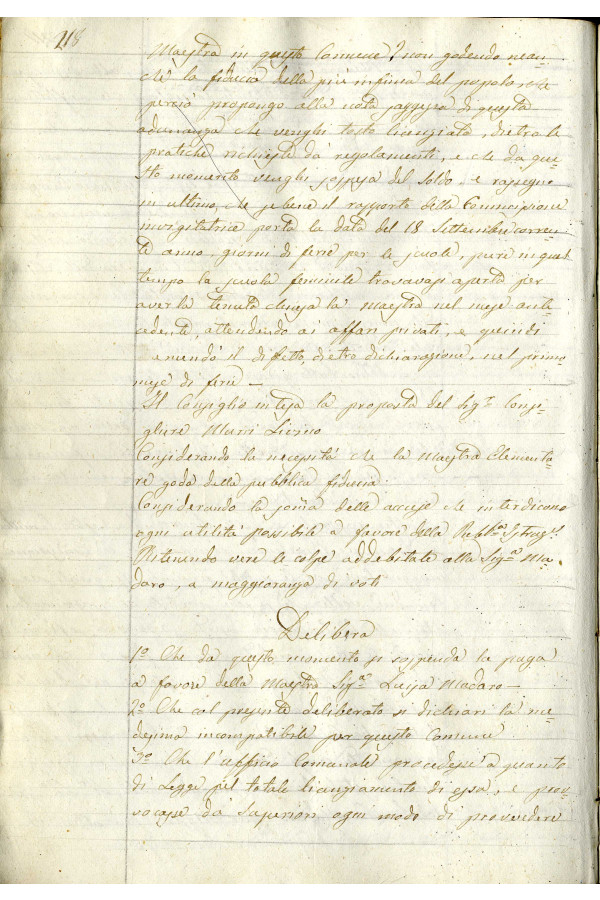 218
Maestra in questo Comune? non godendo nean-
che la fiducia della più infima del popolo, e
perciò propongo alla nota saggezza di questa
adunanza che venghi tosto licenziata, dietro le
pratiche richieste da' regolamenti, e che da que-
sto momento venghi sospesa del soldo. e rassegno
in ultimo, che sebene il rapporto della Commissione
invigilatrice porta la data del 18 Settembre corren-
te anno, giorni di ferie per le scuole, pure in quel
tempo la scuola feminile trovavasi aperta per
averla tenuta chiusa la maestra nel mese ante-
cedente, attendendo ai affari privati, e quindi
emendò il difetto, dietro dichiarazione, nel primo
mese di ferie —
Il Consiglio intesa la proposta del Sigr. Consi-
gliere Murri Livino
Considerando la necessità che la Maestra Elementa-
re goda della pubblica fiducia
Considerando la somma delle accuse che interdicono
ogni utilità possibile a favore della Pubbca. Istruz.
Ritenendo vere le colpe addebitate alla Siga. Ma-
daro, a maggioranza di voti
Delibera
1o. Che da questo momento si sospenda la paga
a favore della Maestra Siga. Luisa Madaro —
2o. Che col presente deliberato si dichiari la me-
desima incompatibile per questo Comune
3o. Che l'ufficio Comunale procedesse a quanto
di Legge pel totale licenziamento di essa, e prov-
vocasse da' Superiori ogni modo di provvedere